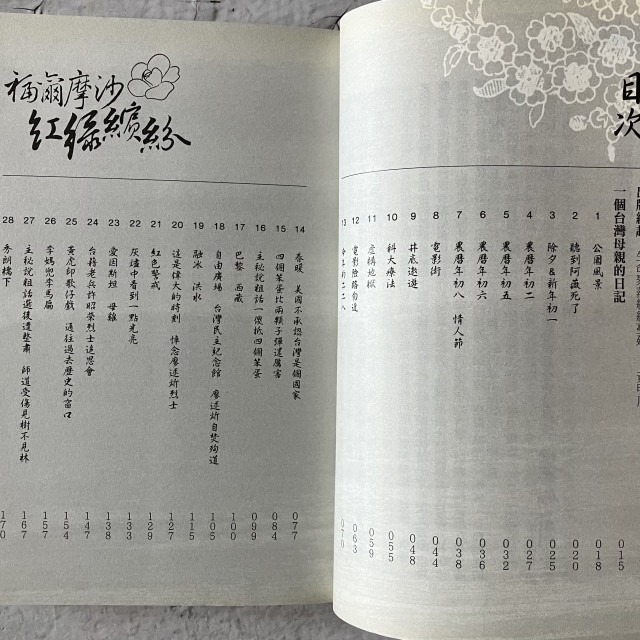 目次
一個台灣母親的日記 015
1 公園風景 018
2 聽到阿薇死了 020
3 除夕&新年初一 025
4 農曆年初二 027
5 農曆年初五 032
6 農曆年初六 036
7 農曆年初八 情人節 038
8 電影街 044
9 井底遨遊 048
10 科大療法 055
11 虛構地獄 059
12 電影陰路 063
13 今年的二二八 070
福爾摩沙
紅綠繽紛
14 春暖 美國不承認台灣是個國家 077
15 四個笨蛋比兩顆子彈還厲害 084
16 主秘說粗話一價抵四個笨蛋 099
17 巴黎 西藏 100
18 自由廣場 台灣民主紀念館 廖述炘自焚殉道 105
19 融冰 洪水 115
20 這是偉大的時刻 悼念廖述炘烈士 127
21 紅色警戒 129
22 灰燼中看到一點光亮 133
23 愛因斯坦 母雞 138
24 台籍老兵許昭榮烈士追思會 147
25 黃虎印歌仔戲 通往過去歷史的窗口 154
26 李媽兜李馬扁 157
27 主秘說粗話進後遭整肅 師道受傷見樹不見林 167
28 秀朗橋下 170